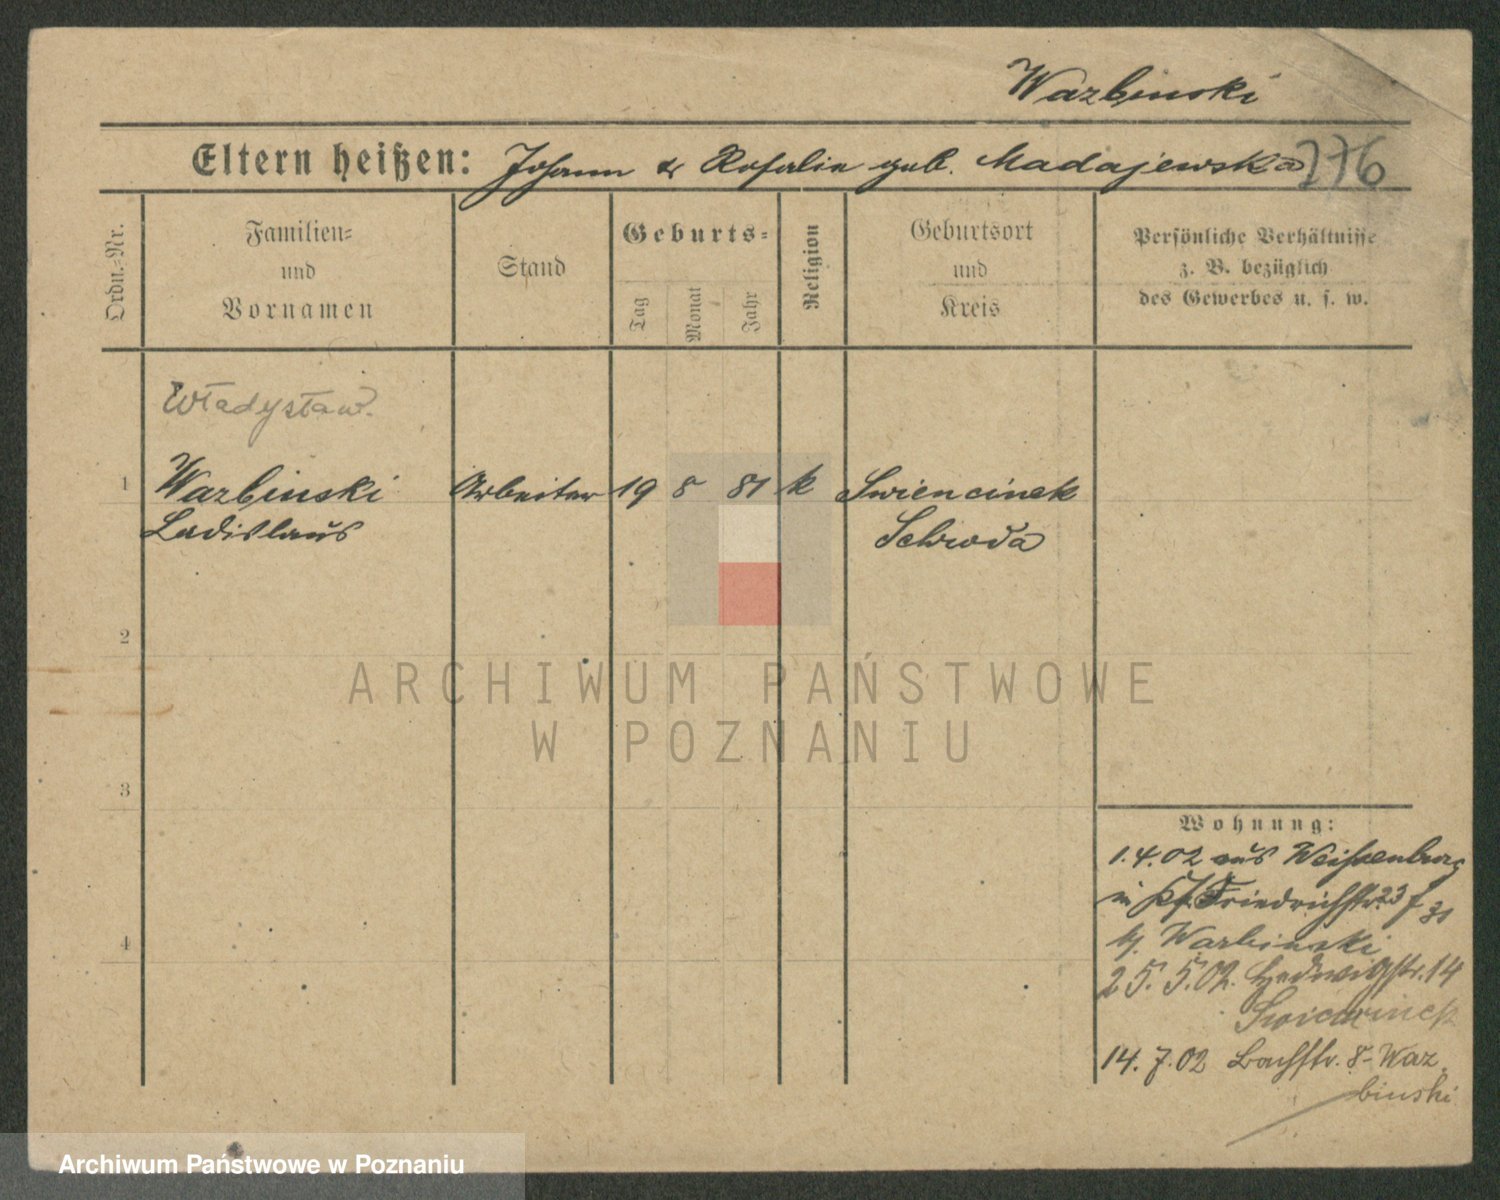 Wazbinski
Eltern heißen: Johann & Rosalie geb. Madajewska 276
Ordn.-Nr.
Familien-
und
Vornamen
Stand
Geburts-
Tag
Monat
Jahr
Religion
Geburtsort
und
Kreis
Persönliche Verhältnisse
z. B. bezüglich
des Gewerbes u. s. w.
Władysław.
1 Wazbinski Arbeiter 19 8 81 k Swiencinek
Ladislaus Schroda
2
ARCHIWUM PAŃSTWOWE
W POZNANIU
3
Wohnung:
1.4.02 aus Weissenburg
in Friedrichstr. 23
Wazbinski
25.5.02. Hedwigstr. 14
4
14.7.02 Bachstr. 8 Waz
binski
Archiwum Państwowe w Poznaniu